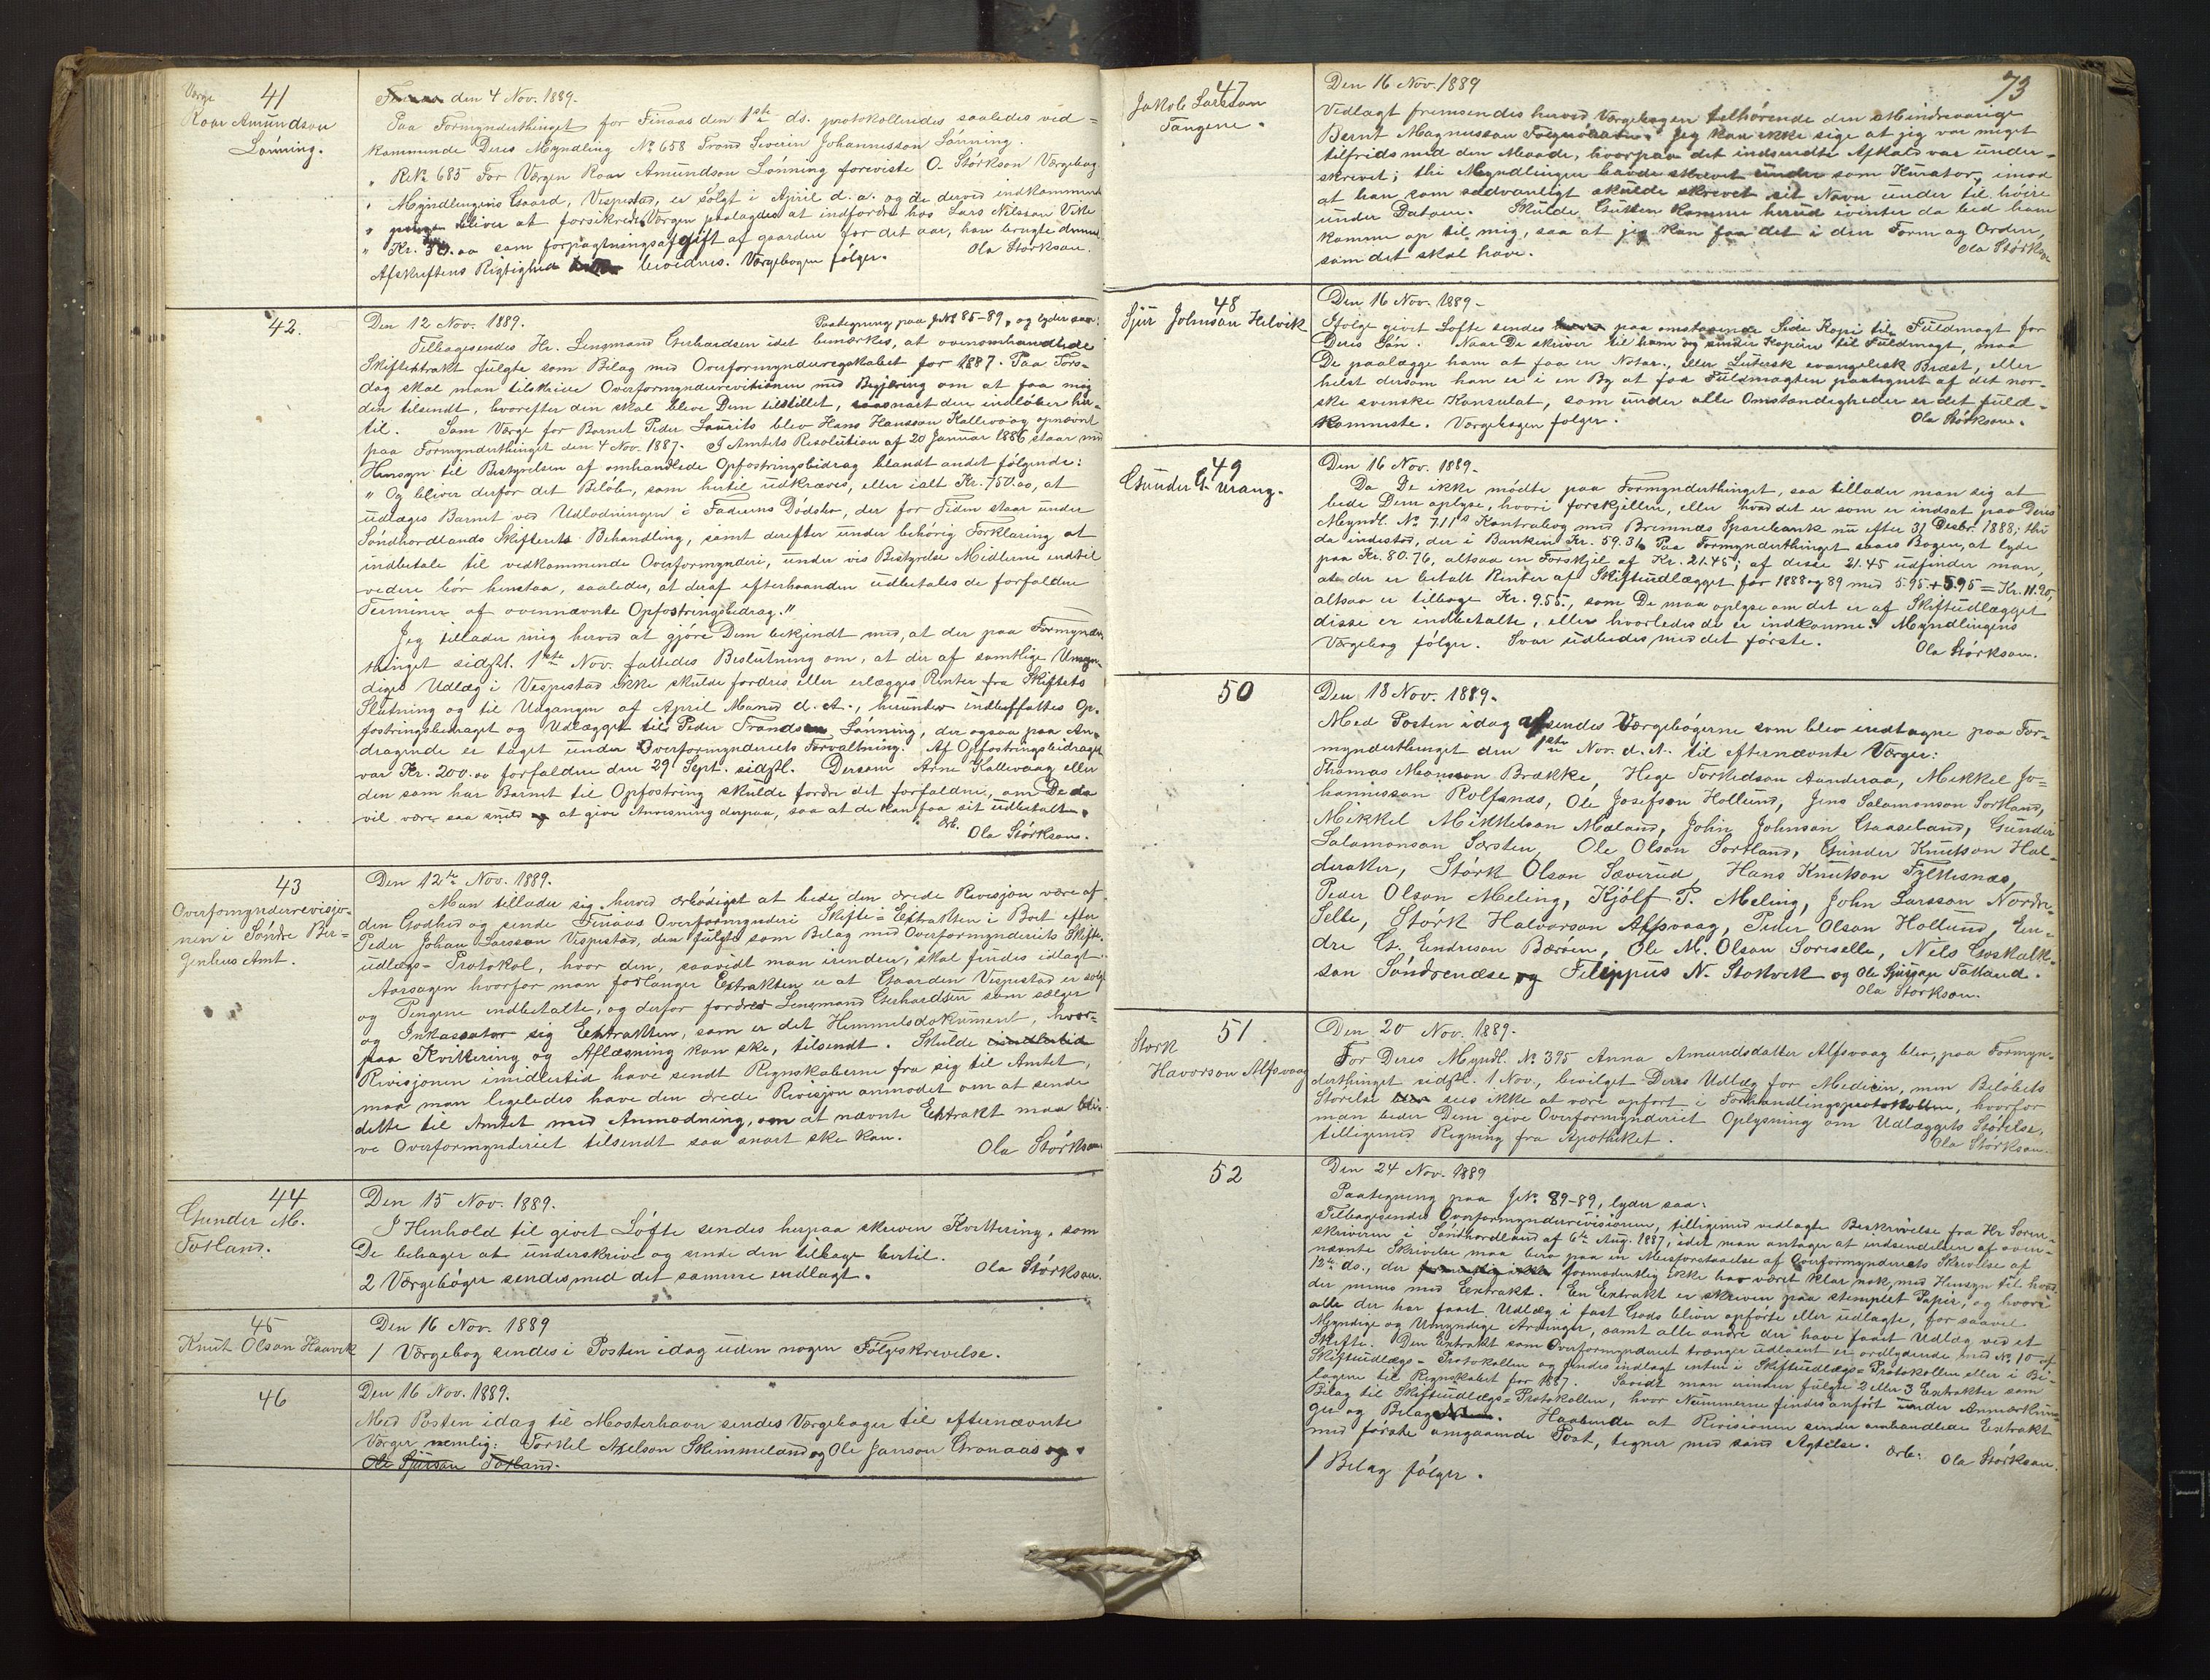 Værge 41
Roar Amundson
Lönning.
den 4 Nov. 1889.
Paa Formynderthinget for Finaas den 1ste ds. protokolleredes saaledes ved=
kommende Deres Myndling No 658 Trond Severin Johannesson Lönning.
" No 685 For Værgen Roar Amundson Lönning foreviste O. Störkson Værgebog
" Myndlingens Gaard, Vespestad, er solgt i April d. a. og de derved indkommne
" penge bliver at forsikrede Værgen paalagdes at indfordre hos Lars Nilsson Vike
" Kr. 30.00 som forpagtningsafgift af gaarden for det aar, han brugte denne
Afskriftens Rigtighed bevidnes. Værgebogen følger. Ola Störkson.
42.
Den 12 Nov. 1889. Paategning paa JN 85-89, og lyder saa:
Tilbagesendes Hr. Lensmand Gerhardsen idet bemærkes, at ovenomhandlede
Skifteextrakt fulgte som Bilag med Overformynderregnskabet for 1887. Paa Tors=
dag skal man tilskrive Overformynderrevisionen med Begjæring om at faa mig
den tilsendt, hvorefter den skal blive Dem tilstillet, saasnart den indløber her=
til. Som Værge for Barnet Peder Laurits blev Hans Hansson Kallevaag opnævnt
paa Formynderthinget den 4 Nov. 1887. I Amtets Resolution af 20 Januar 1886 staar med
Hensyn til Bestyrelsen af omhandlede Opfostringsbidrag blandt andet følgende:
" Og bliver derfor det Beløb, som hertil udkræves, eller ialt Kr. 750.00, at
udlægges Barnet ved Udlodningen i Faderens Dödsbo, der for Tiden staar under
Söndhordlands Skifterets Behandling, samt derefter under behörig Forklaring at
indbetale til vedkommende Overformynderi, under vis Bestyrelse Midlerne indtil
videre bör henstaa, saaledes, at deraf efterhaanden udbetales de forfaldne
Terminer af ovennævnte Opfostringsbidrag."
Jeg tillader mig herved at gjöre Dem bekjendt med, at der paa Formynder
thinget sidstl. 1ste Nov. fattedes Beslutning om, at der af samtlige Umyn=
diges Udlæg i Vespestad ikke skulde fordres eller erlægges Renter fra Skiftets
Slutning og til Udgangen af April Maaned d. A., herunder indbefattes Op=
fostringsbidraget og Udlægget til Peder Trondson Lönning, der ogsaa paa An=
dragende er taget under Overformynderiets Forvaltning. Af Opfostringsbidraget
var Kr. 200.00 forfaldne den 29 Sept. sidstl. Dersom Arne Kallevaag eller
den som har Barnet til Opfostring skulde fordre det forfaldne, om De da
vil være saa snild at give Anvisning derpaa, saa at de kan faa sit udbetalt.
Erb. Ola Störkson.
43
Overfomynderrevisjo=
nen i Söndre Ber=
genhus Amt.
Den 12te Nov. 1889.
Man tillader sig herved ærbödigst at bede den ærede Revisjon være af
den Godhed og sende Finaas Overformynderi Skifte=Extrakten i Boet efter
Peder Johan Larsson Vespestad, den fulgte som Bilag med Overformynderiets Skifte=
udlægs=Protokol, hvor den, saavidt man erindrer, skal findes idlagt.
Aarsagen hvorfor man forlanger Extrakten er at Gaarden Vespestad er solgt
og Pengene indbetalte, og derfor fordrer Lensmand Gerhardsen som sælger
og Inkassator sig Extrakten, som er det Hemmelsdokument, hvor=
paa Kvittering og Aflæsning kan ske, tilsendt. Skulde
Revisjonen imidlertid have sendt Regnskaberne fra sig til Amtet,
maa man ligeledes have den ærede Revisjon anmodet om at sende
dette til Amtet med Anmodning, om at nævnte Extrakt maa bli=
ve Overformynderiet tilsendt saa snart ske kan. Ola Störkson
44
Gunder M.
Totland.
Den 15 Nov. 1889.
I Henhold til givet Löfte sendes herpaa skreven Kvittering, som
De behager at underskrive og sende den tilbage hertil.
2 Værgebøger sendes med det samme indlagt. Ola Störkson.
45
Knut Olson Haavik
Den 16 Nov. 1889
1 Værgebog sendes i Posten idag uden nogen Fölgeskrivelse.
46
Den 16 Nov. 1889.
Med Posten idag til Mosterhavn sendes Værgebøger til efternævnte
Værger nemlig: Torkel Axelson Skimmeland og Ole Janson Gronaas og
Ole Sjurson Totland.
73
47
Jakob Larsson
Tangene.
Den 16 Nov. 1889
Vedlagt fremsendes herved Værgebogen tilhørende den Mindreaarige
Bernt Magnusson Jeg kan ikke sige at jeg var meget
tilfreds med den Maade, hvorpaa det indsendte Afkald var under=
skrevet; thi Myndlingen havde skrevet under som Kurator, imod
at han som sædvanligt skulde skrevet sit Navn under til höire
under Datoen. Skulde Gutten komme herud ivinter da bed ham
komme op til mig, saa at jeg kan faa det i den Form og Orden,
som det skal have. Ola Störkson
48
Sjur Johnson Helvik
Den 16 Nov. 1889.
Ifølge givet Löfte sendes paa omstaaende Side Kopi til Fuldmagt for
Deres Sön. Naar De skriver til ham og sender Kopien til Fuldmagt, maa
De paalægge ham at faa en Notar., eller Lutersk evangelisk Præst, eller
helst dersom han er i en By at faa Fuldmagten paategnet af det nor=
ske svenske Konsulat, som under alle Omstændigheder er det fuld=
komneste. Værgebogen følger. Ola Störkson.
49
Gunder G. Urang.
Den 16 Nov. 1889.
Da De ikke mödte paa Formynderthinget, saa tillader man sig at
bede Dem oplyse, hvori forskjellen, eller hvad det er som er indsat paa Deres
Myndl. No 711s Kontrabog med Bremnæs Sparebank nu efter 31 Desbr. 1888; thi
da indestod, der i Banken Kr. 59.31. Paa Formynderthinget saaes Bogen, at lyde
paa Kr. 80.76, altsaa en Forskjel af Kr. 21.45; af disse 21.45 udfinder man,
at der er betalt Renter af Skifteudlægget for 1888 og 89 med 5.95 + 5.95 = Kr. 11.90,
altsaa er tilbage Kr. 9.55., som De maa oplyse om det er af Skifteudlægget
disse er indbetalte, eller hvorledes de er indkomne? Myndlingens
Værgebog følger. Svar udbedes med det første. Ola Störkson.
50
Den 18 Nov. 1889.
Med Posten idag afsendes Værgebögerne som blev indtagne paa For=
mynderthinget den 1ste Nov. d. A. til efternævnte Værger:
Thomas Monsson Brække, Hege Torkedson Aanderaa, Mikkel Jo=
hannesson Rolfsnæs, Ole Josefson Hollund, Jens Salamonson Sortland,
Mikkel Mikkelson Mæland, John Johnson Gaaseland, Gunder
Salamonson Sørsten, Ole Olson Sortland, Gunder Knutson Hal=
deraker, Störk Olson Sæverud, Hans Knutson Fylkesnæs,
Peder Olson Meling, Kjölf P. Meling, John Larsson Nordre=
Selle, Störk Halvorson Alfsvaag, Peder Olson Hollund, En=
dre G. Endreson Bæröen, Ole M. Olson Soreselle, Nels Goskalk=
son Söndrenæse og Filippus N. Stokvik og Ole Sjurson Totland.
Ola Störkson.
51
Störk
Havorson Alfsvaag
Den 20 Nov. 1889.
For Deres Myndl. No 395 Anna Amundsdatter Alfsvaag blev, paa Formyn=
derthinget sidstl. 1 Nov., bevilget Deres Udlæg for Medicin, men Beløbets
Störelse sees ikke at være opfört i Forhandlingsprotokollen, hvorfor
man beder Dem give Overformynderiet Oplysning om Udlæggets Störelse,
tilligemed Regning fra Apotheket. Ola Störkson.
52
Den 24 Nov. 1889
Paategning paa JNo 89-89, lyder saa:
Tilbagesendes Overformynderrevisionen, tilligemed vedlagte Beskrivelse fra Hr Soren=
skriveren i Söndhordland af 6te Aug. 1887, idet man antager at indsendelsen af oven=
nævnte Skrivelse maa bero paa en Misforstaaelse af Overformynderiets Skrivelse af
12te ds., der formodentlig ikke har været klar nok, med Hensyn til hvad
der menes med Extrakt. En Extrakt er skreven paa stemplet Papir, og hvori
alle der har faaet Udlæg i fast Gods bliver opförte eller udlagte, for saavel
Myndige og Umyndige Arvinger, samt alle andre der have faaet Udlæg ved et
Skifte. Den Extrakt som Overformynderiet trænger udlaant er ordlydende med No 10 af
Skifteudlægs=Protokollen og findes indlagt enten i Skifteudlægs=Protokollen eller i Bi=
lagene til Regnskabet for 1887. Savidt man erindrer fulgte 2 eller 3 Extrakter som
Bilag til Skifteudlægs=Protokollen, hvor Nummerne findes anfört under Anmærknin=
ger og Bilag. Haabende at Revisionen sender omhandlede Extrakt
med förste omgaaende Post, tegner med sand Agtelse.
Ærb: Ola Störkson.
1 Belag følger.